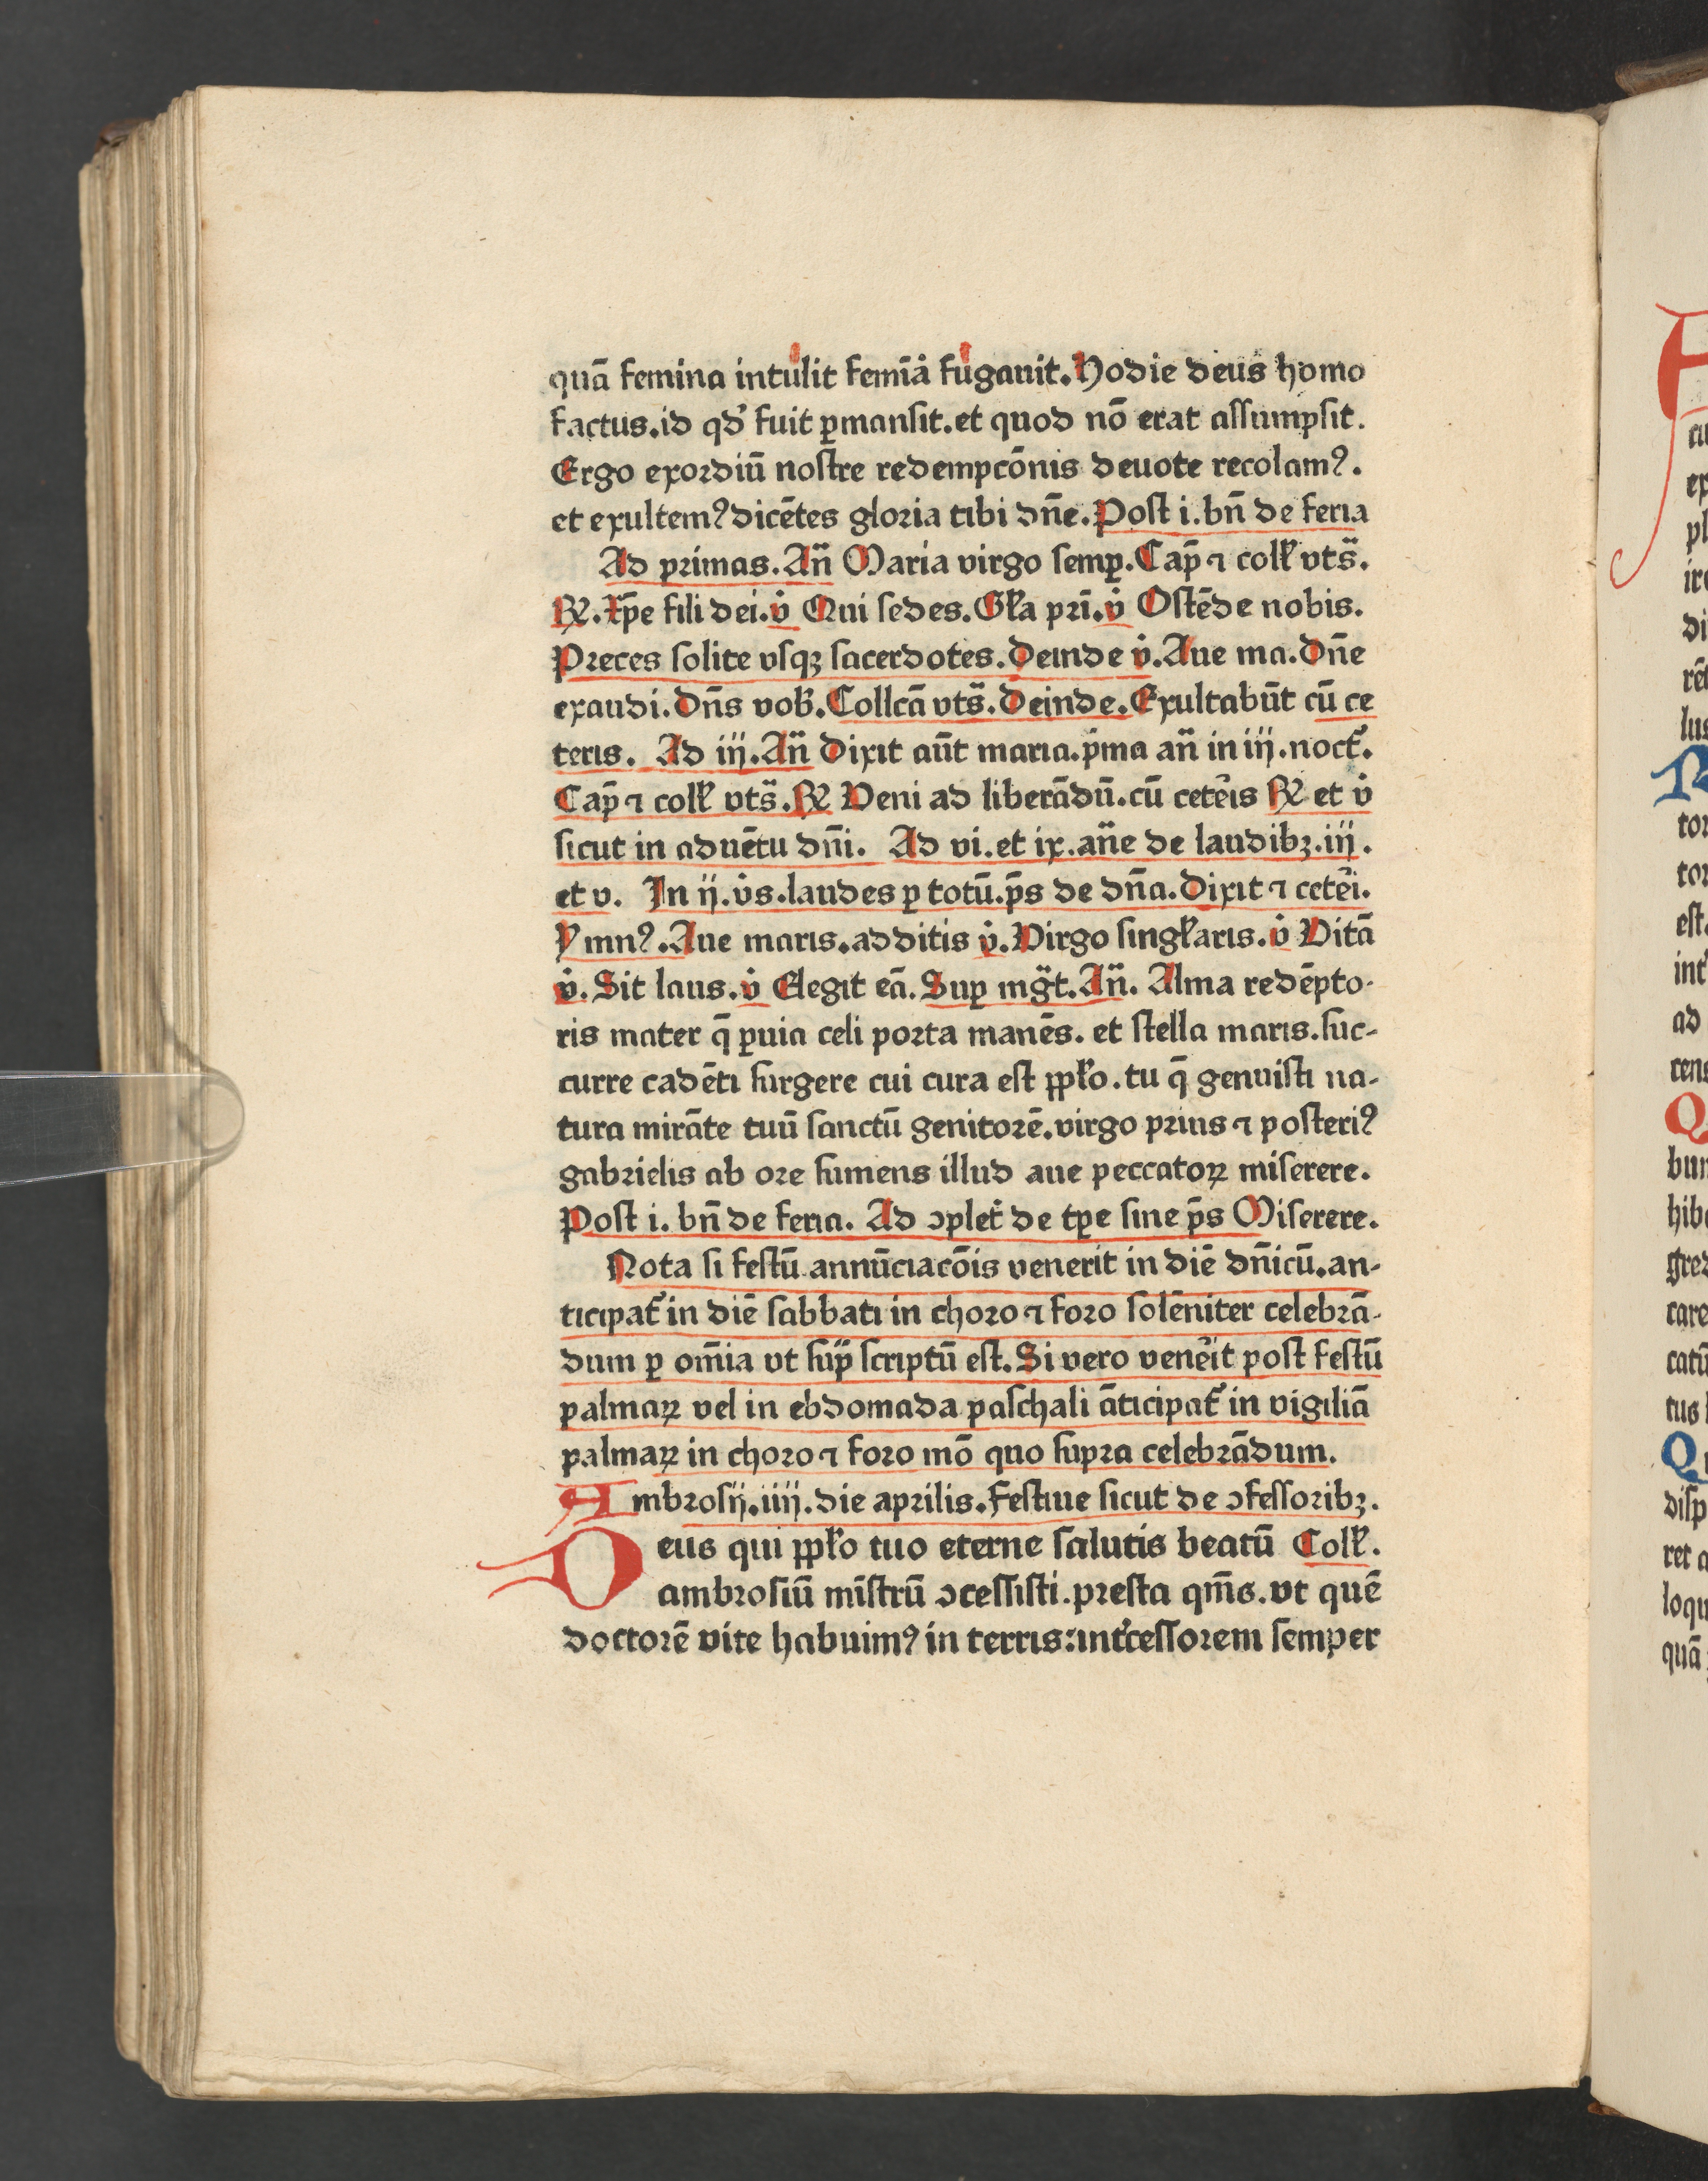 quā femina intulit femīa fugauit. Hodie deus homo
factus. id qd' fuit ꝑmansit. et quod nō erat assumpsit.
Ergo exordiū nostre redempcōnis deuote recolamꝰ.
et exultemꝰ dicētes gloria tibi dn̄e. Post i. bn̄ de feria
Ad primas. An̄ Maria virgo semꝑ. Cap̄ ⁊ coll' vts̄.
℞. Xp̄e fili dei. v̇ Qui sedes. Gl'a pri̅. v̇ Ostēde nobis.
Preces solite vsqꝫ sacerdotes. Deinde v̇. Aue ma. Dn̄e
exaudi. Dn̄s vob'. Collcā vts̄. Deinde. Exultabūt cū ce
teris. Ad iij. An̄ Dixit aūt maria. p̄ma an̄ in iij. noct'.
Cap̄ ⁊ coll' vts̄. ℞ Veni ad liberādū. cū cete'is ℞ et v̇
sicut in aduētu dn̄i. Ad vi. et ix. an̄e de laudibꝫ. iij.
et v. In ij. v̇s. laudes ꝑ totū. p̄s de dn̄a. Dixit ⁊ cete'i.
Ymnꝰ. Aue maris. additis v̇. Virgo singl'aris. v̇ Vitā
v̇. Sit laus. v̇ Elegit eā. Suꝑ mḡt. An̄. Alma redēpto-
ris mater q̄ ꝑuia celi porta manēs. et stella maris. suc-
curre cadēti surgere cui cura est ppl'o. tu q̄ genuisti na-
tura mirāte tuū sanctū genitorē. virgo prius ⁊ posteriꝰ
gabrielis ab ore sumens illud aue peccatoꝝ miserere.
Post i. bn̄ de feria. Ad ꝯplet' de tꝑe sine p̄s Miserere.
Nota si festū annūciacōis venerit in diē dn̄icū. an-
ticipat' in diē sabbati in choro ⁊ foro solēniter celebrā-
dum ꝑ om̄ia vt sup̄ scriptū est. Si vero vene'it post festū
palmaꝝ vel in ebdomada paschali āticipat' in vigiliā
palmaꝝ in choro ⁊ foro mō quo supra celebrādum.
Ambrosij. iiij. die aprilis. Festiue sicut de ꝯfessoribꝫ.
Deus qui ppl'o tuo eterne salutis beatū Coll'.
ambrosiū mīstrū ꝯcessisti. presta qm̄s. vt quē
doctorē vite habuimꝰ in terris: int'cessorem semper